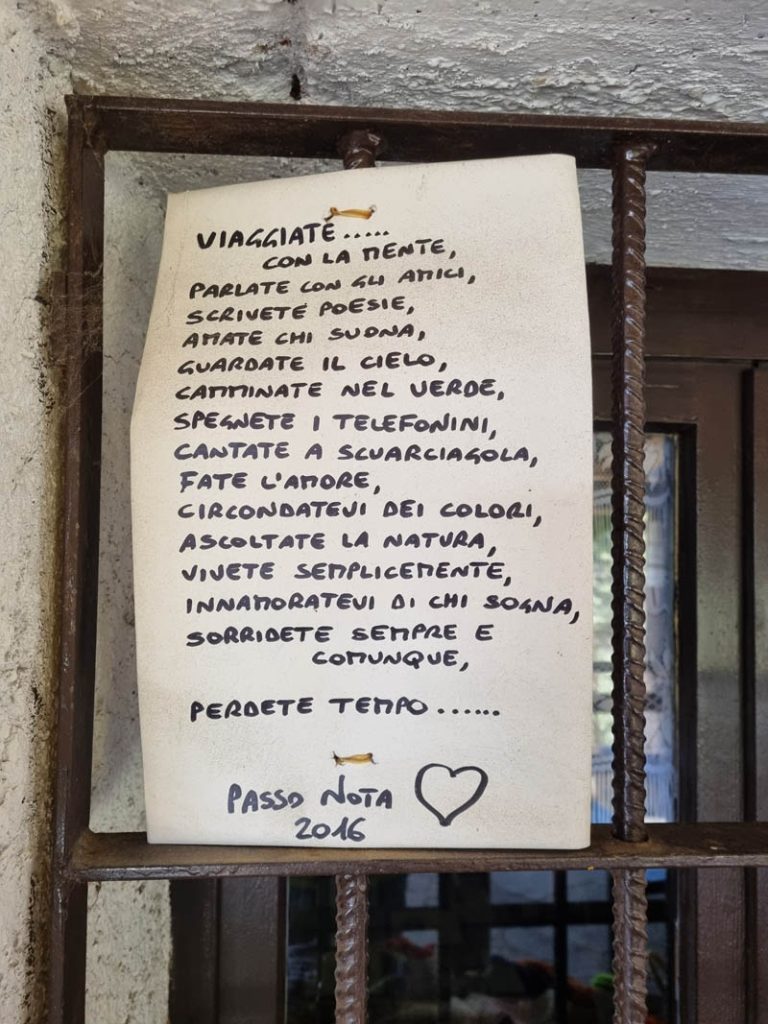 VIAGGIATE.....
CON LA MENTE,
PARLATE CON GLI AMICI,
SCRIVETE POESIE,
AMATE CHI SUONA,
GUARDATE IL CIELO,
CAMMINATE NEL VERDE,
SPEGNETE I TELEFONINI,
CANTATE A SCUARCIAGOLA,
FATE L'AMORE,
CIRCONDATEVI DEI COLORI,
ASCOLTATE LA NATURA,
VIVETE SEMPLICEMENTE,
INNAMORATEVI DI CHI SOGNA,
SORRIDETE SEMPRE E
COMUNQUE,
PERDETE TEMPO......
PASSO NOTA
2016